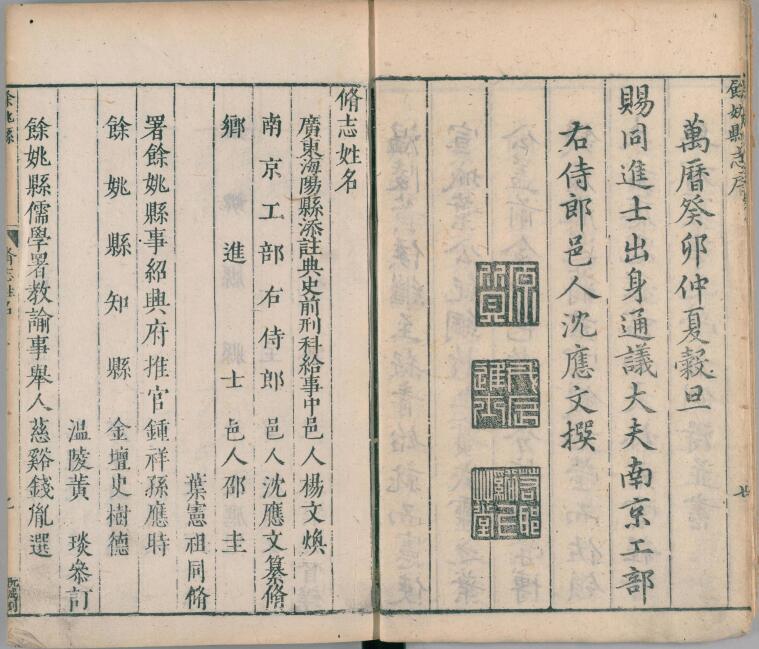 餘姚縣志序
萬曆癸卯仲夏穀旦
賜同進士出身通議大夫南京工部
右侍郎邑人沈應文撰
脩志姓名
廣東海陽縣添註典史前刑科給事中邑人楊文煥
南京工部右侍郎邑人沈應文纂脩
鄉進士邑人邵圭
葉憲祖同脩
署餘姚縣事紹興府推官鍾祥孫應時
餘姚縣知縣金壇史樹德
溫陵黃琰叅訂
餘姚縣儒學署教諭事舉人慈谿錢胤選
餘姚縣
脩志姓名